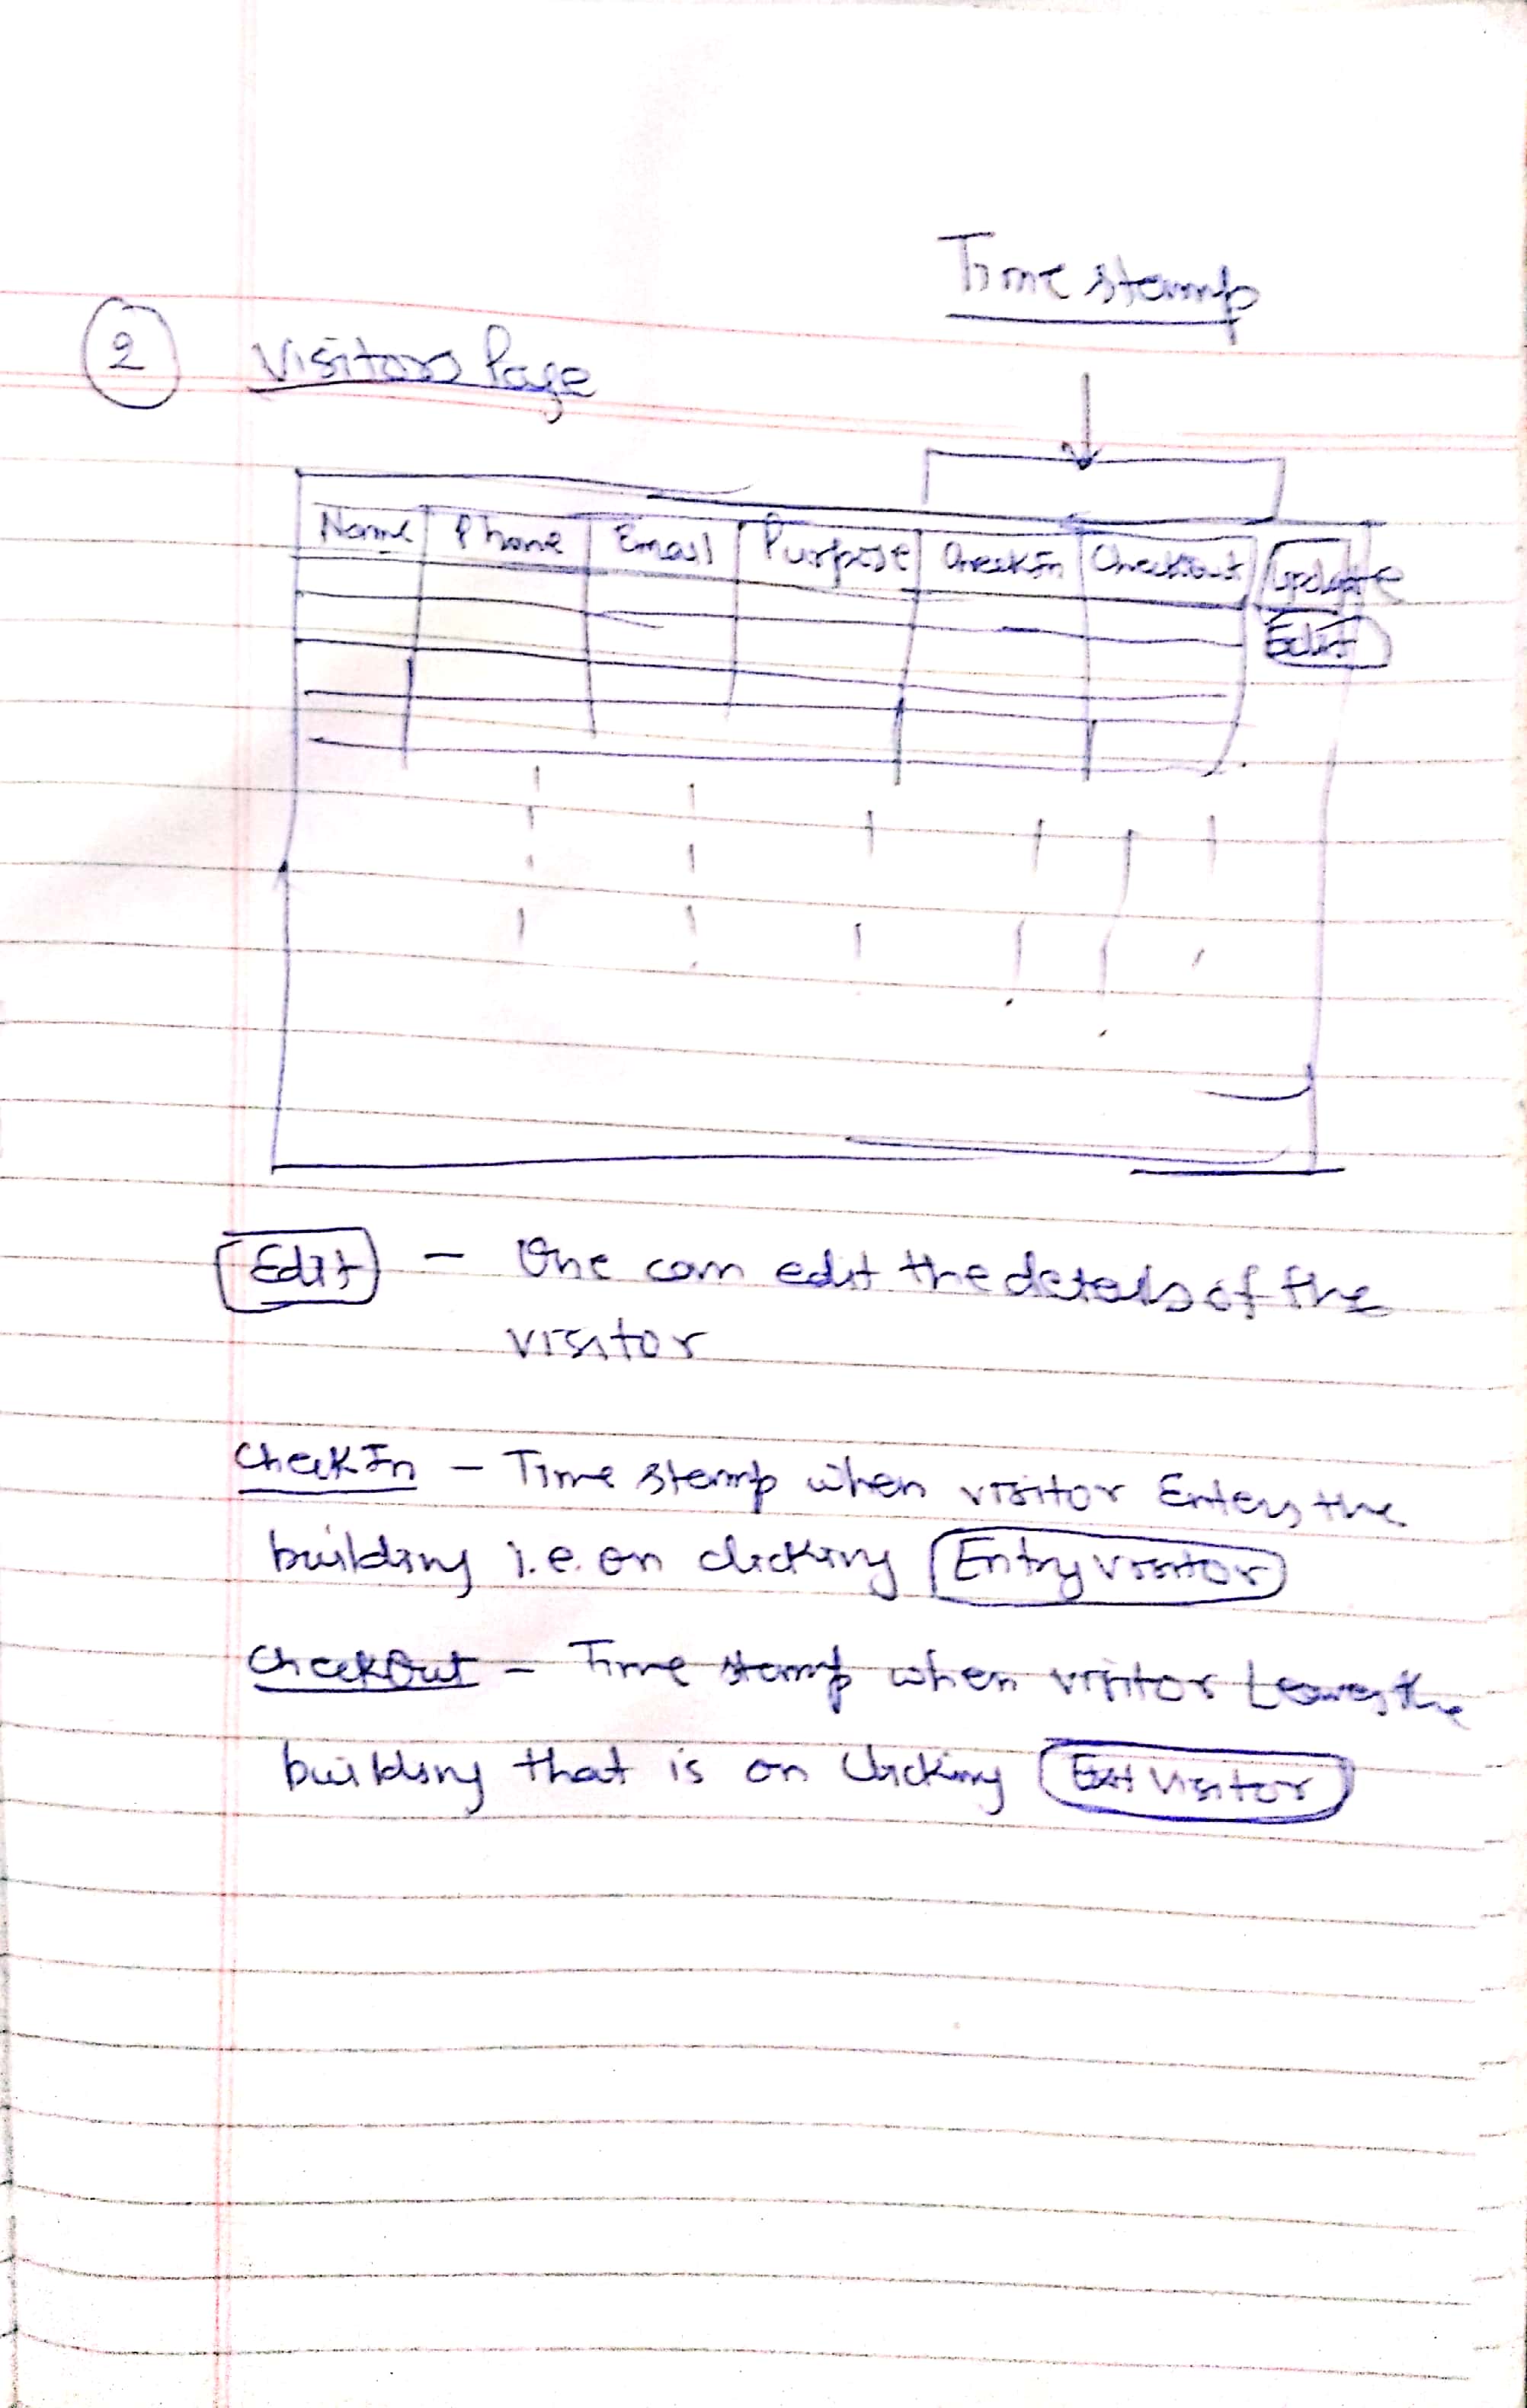 Time stamp
2 Visitors Page
Name Phone Email Purpose CheckIn CheckOut Update
Edit
Edit - One can edit the details of the
visitor
CheckIn - Time stamp when visitor Enters the
building i.e. on clicking Entry visitor
CheckOut - Time stamp when visitor Leaves the
building that is on clicking Exit visitor